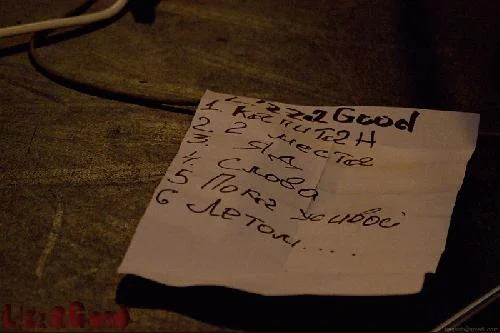 LizzaGood
1. Капитан
2. 2 места
3. Яд
4 Слова
5 Пока живой
6 Летом....
LizzaGood